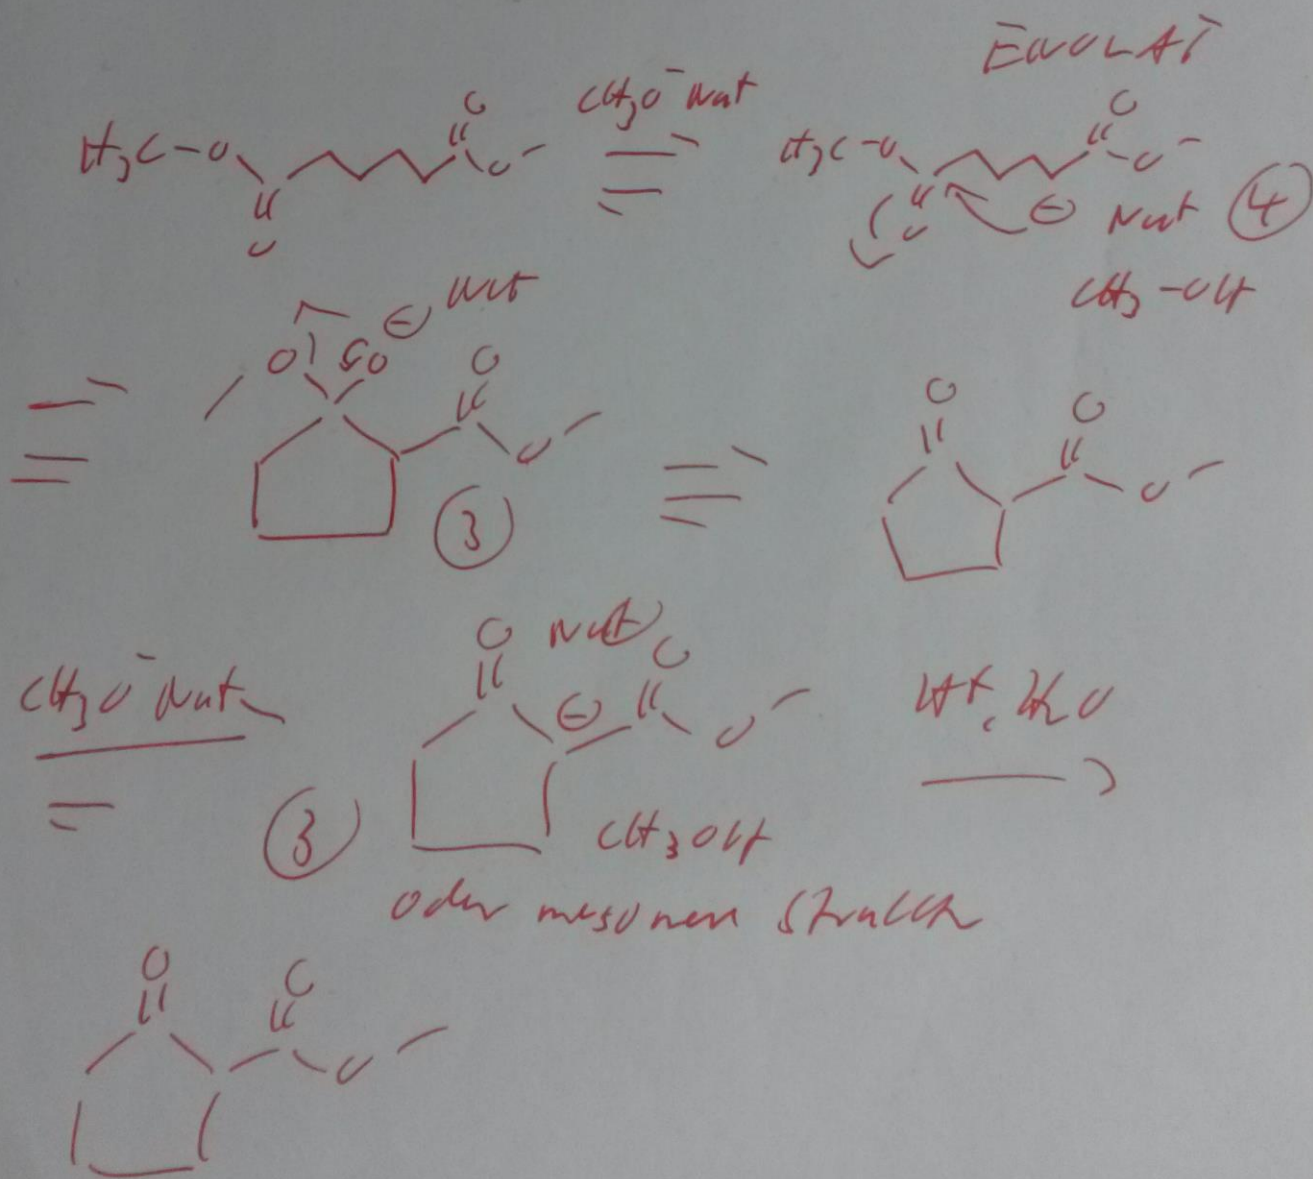 ENOLAT
H₃C-O O O O CH₃O⁻Na⁺ H₃C-O O O O
⊖ Na⁺ ④
CH₃-OH
O O ⊖ Na⁺ O O
③
O O O
CH₃O⁻Na⁺ O Na⁺ ⊖ O O H⁺, H₂O
③ CH₃OH
oder mesomere Struktur
O O O